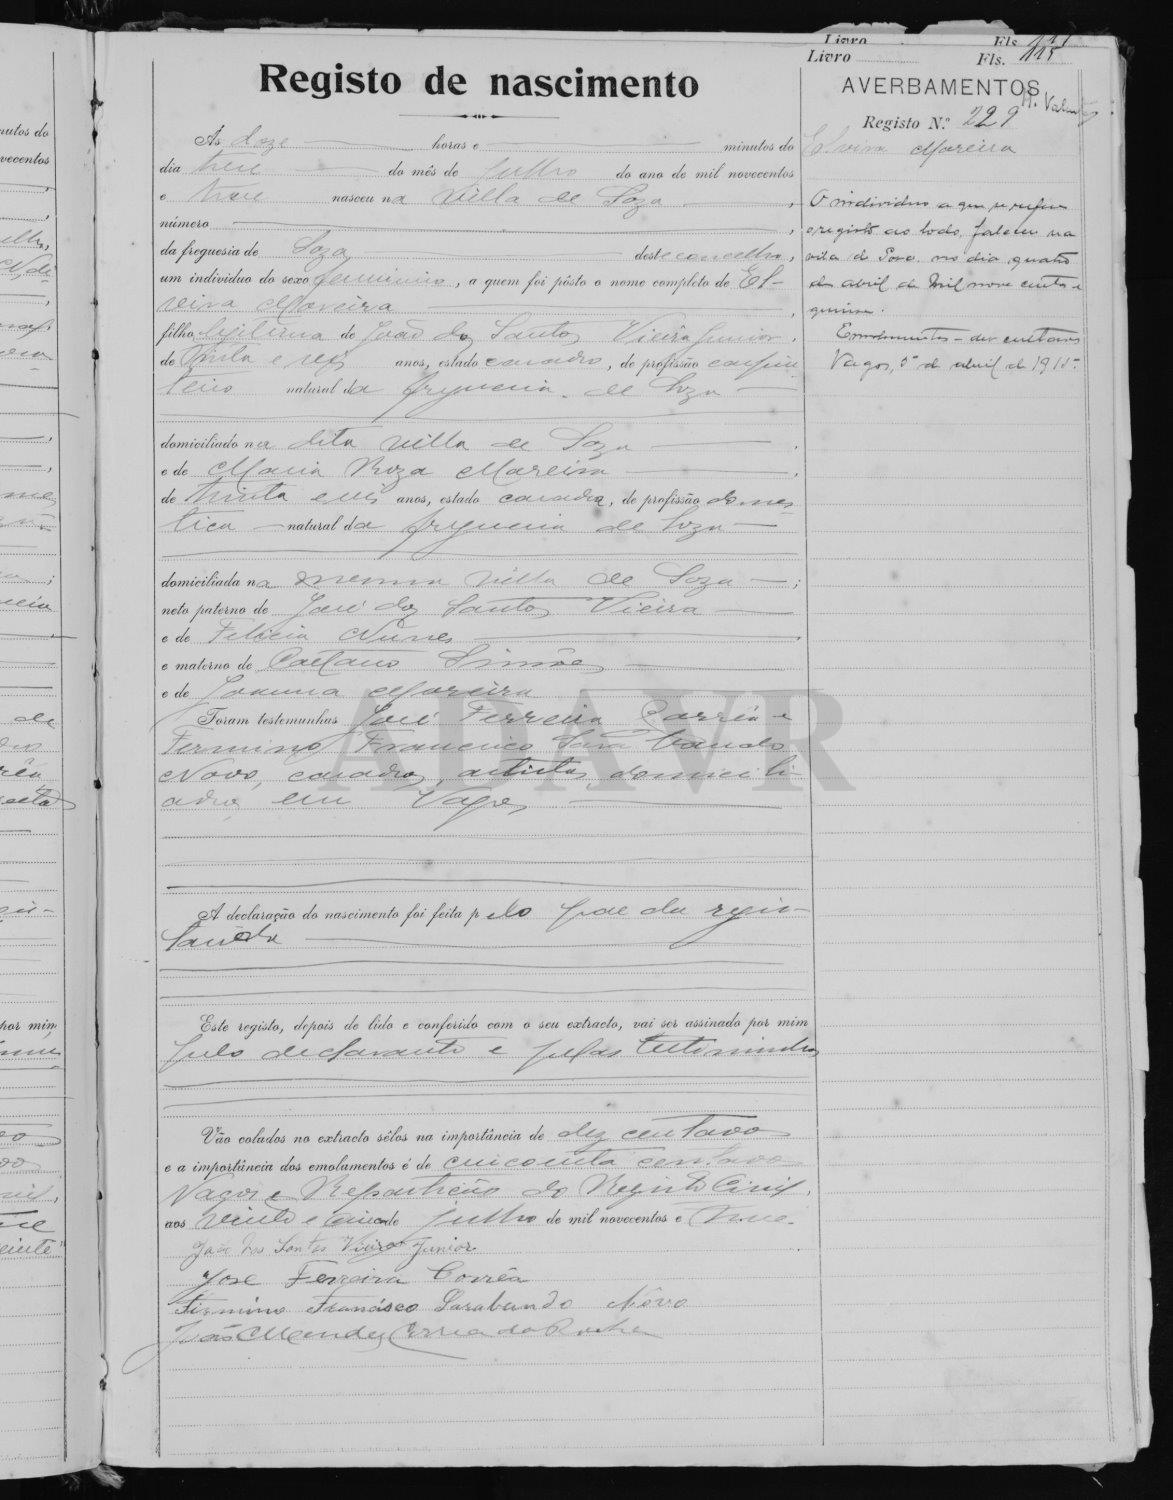 Livro Fls. 117
Livro Fls. 115
Registo de nascimento
AVERBAMENTOS
Registo N.º 229
Elveira Moreira
Ás doze horas e minutos do
dia treze do mês de Julho do ano de mil novecentos
e treze nasceu na villa de Soza,
número ,
da freguesia de Soza deste concelho,
um individuo do sexo feminino, a quem foi pôsto o nome completo de El-
veira Moreira,
filho legitima de João dos Santos Vieira Junior,
de trinta e seis anos, estado casado, de profissão carpin-
teiro natural da freguesia de Soza
domiciliado na dita villa de Soza,
e de Maria Roza Moreira,
de trinta e seis anos, estado casada, de profissão domes-
tica natural da freguesia de Soza
domiciliada na mesma villa de Soza;
neto paterno de José dos Santos Vieira
e de Felicia Nunes,
e materno de Caetano Simões
e de Joanna Moreira
Foram testemunhas José Ferreira Corrêa e
Fermino Francisco Sarabando
Novo, casados, artistas, domicili-
ados em Vagos
A declaração do nascimento foi feita pelo pae da regis-
tanda
Este registo, depois de lido e conferido com o seu extracto, vai ser assinado por mim
pelo declarante e pelas testemunhas
Vão colados no extracto sêlos na importância de dez centavos
e a importância dos emolumentos é de cincoenta centavos
Vagos e Repartição do Registo Civil,
aos vinte e cinco de julho de mil novecentos e treze.
João dos Santos Vieira Junior
José Ferreira Corrêa
Firmino Francisco Sarabando Nôvo
João Mendes Correa da Rocha
O individuo a que se refere
o registo ao lado, faleceu na
vila de Soza no dia quatro
de abril de mil nove centos e
quinze.
Emolumentos - dez centavos
Vagos, 5 de abril de 1915.
ADAVR